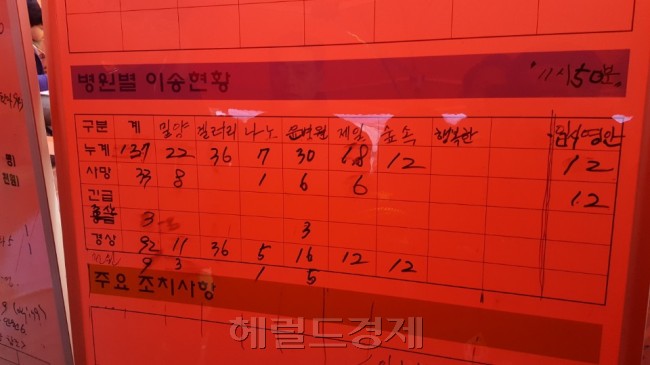 병원별 이송현황 11시50분
구분 계 밀양 갤러리 나노 윤병원 제일 숲속 행복한 임시영안
누계 137 22 36 7 30 18 12 12
사망 33 8 1 6 6 12
긴급
중상 3 3
경상 92 11 36 5 16 12 12
9 3 1 5
주요 조치사항
헤럴드경제